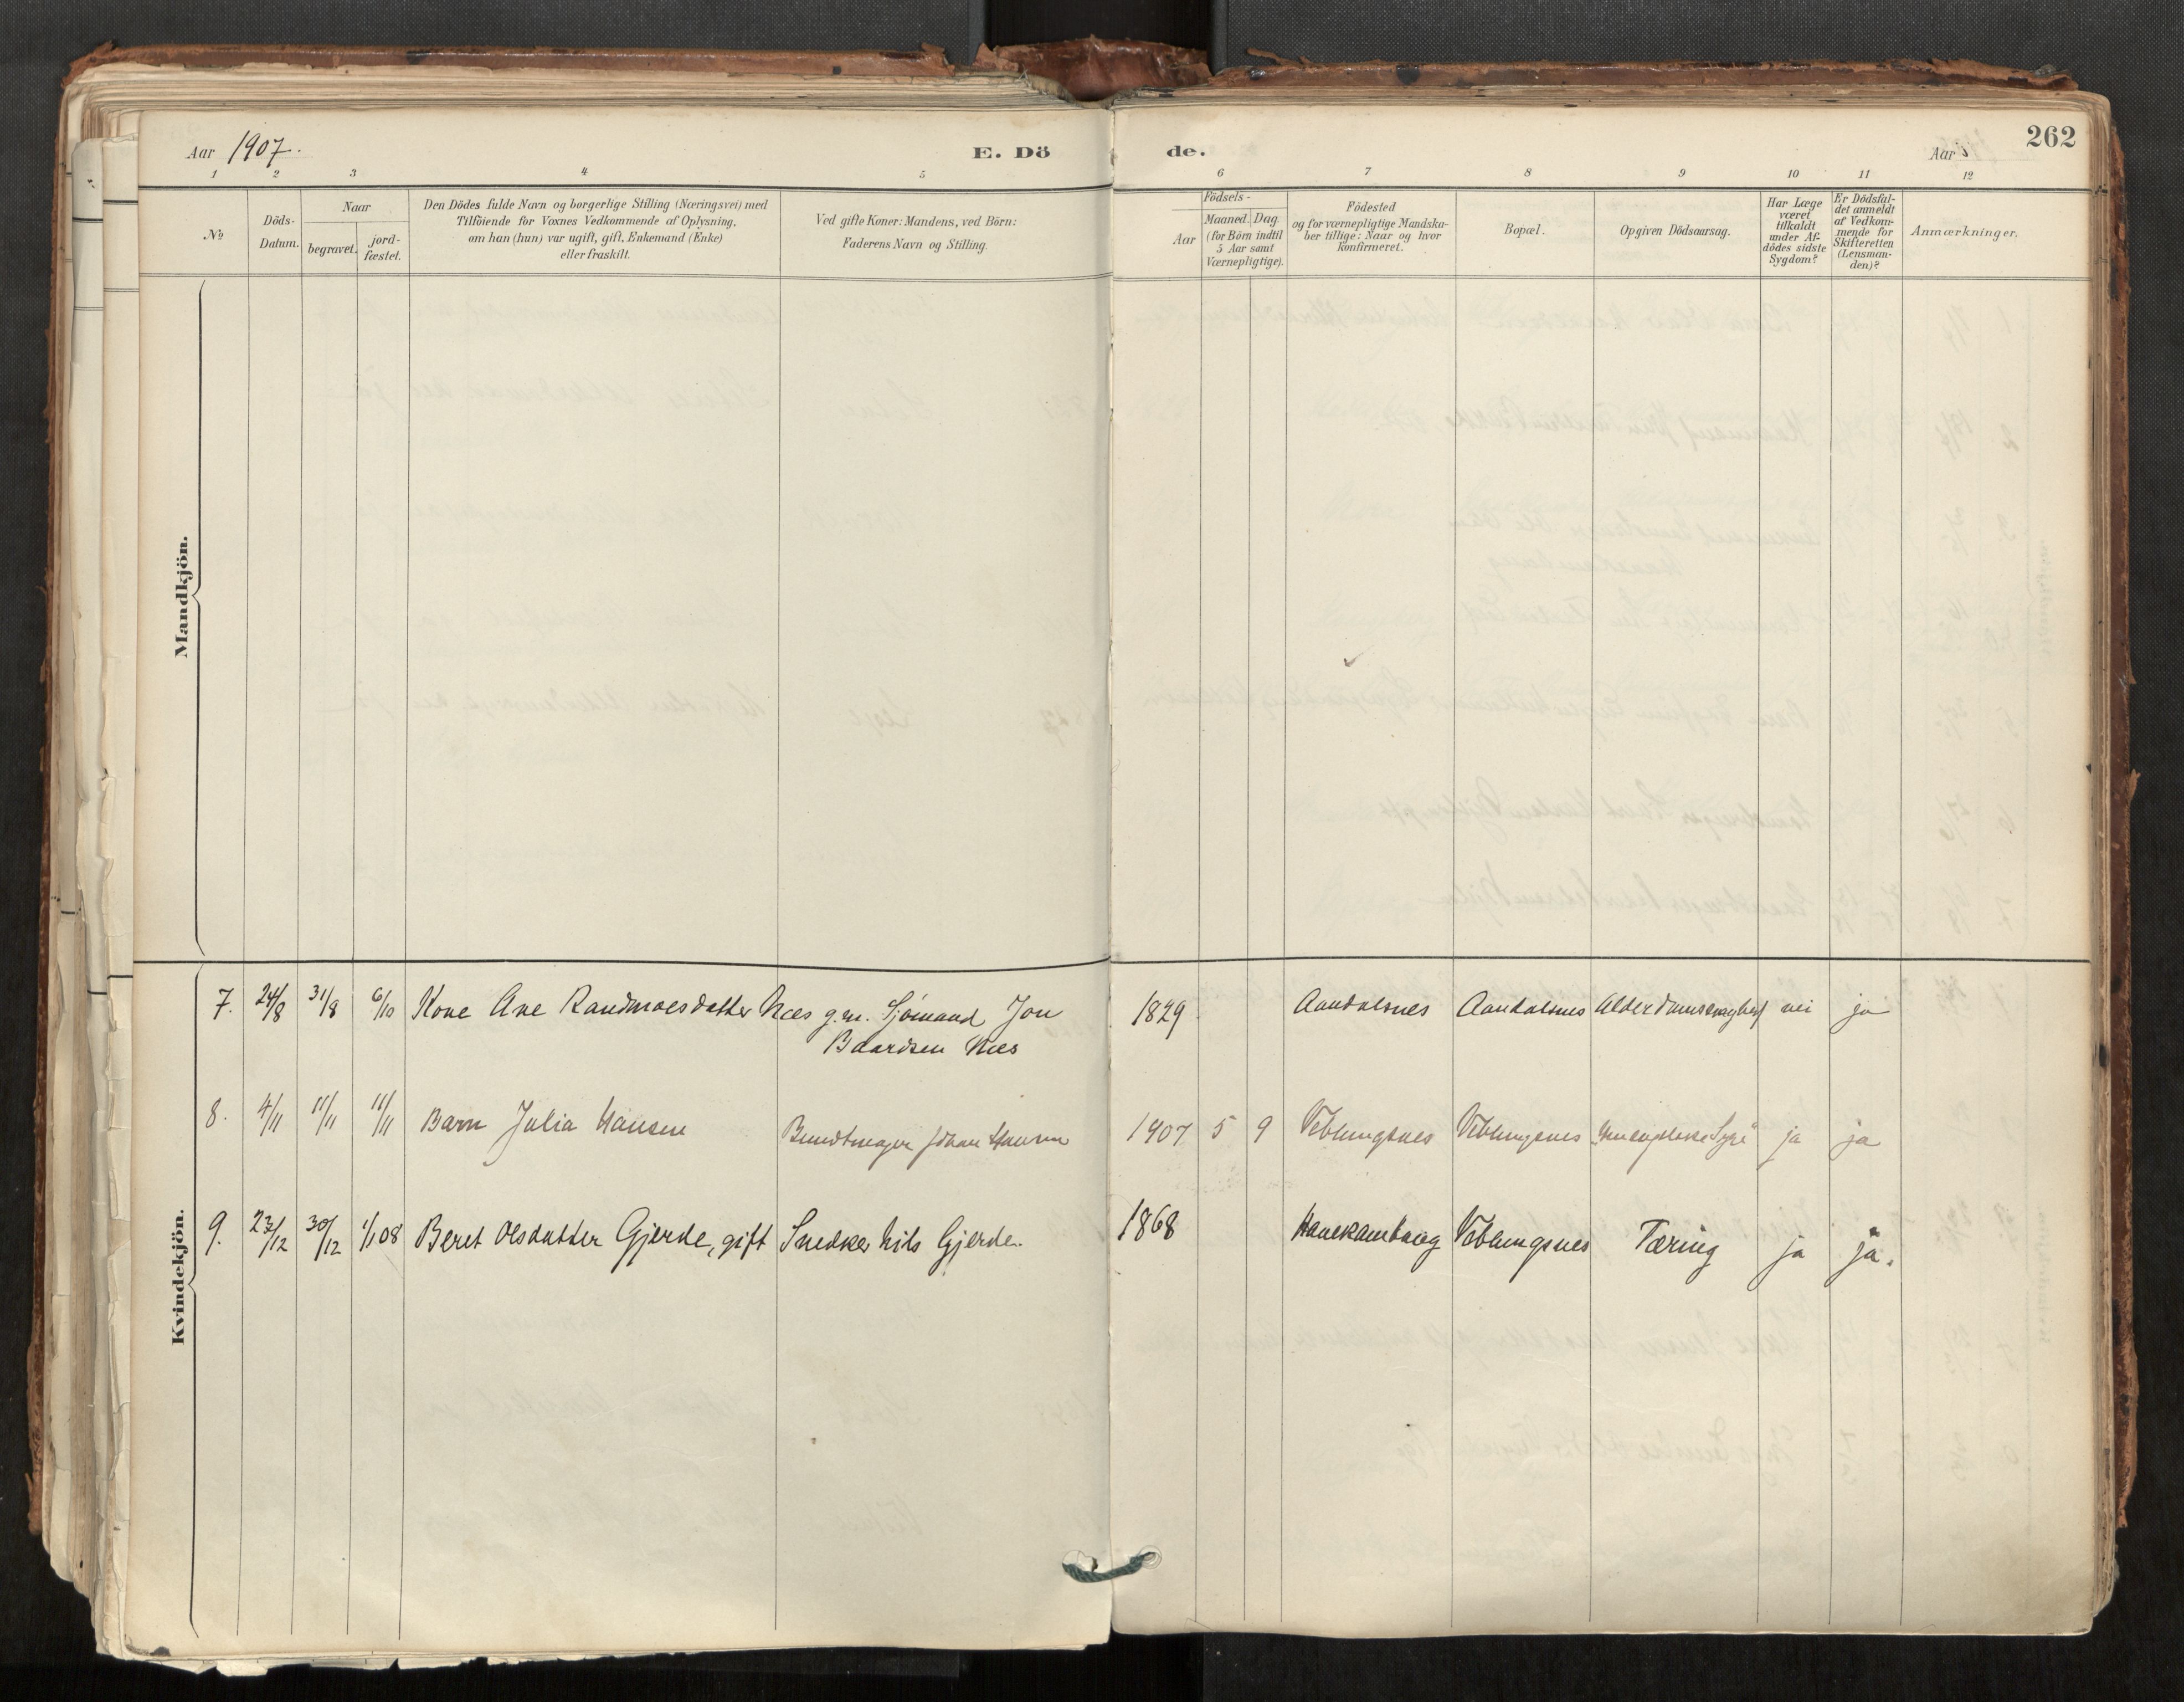 Aar 1907.
E. Döde.
Aar
262
1 2 3 4 5 6 7 8 9 10 11 12
№
Döds-Datum.
Naar
begravet.
jord-fæstet.
Den Dödes fulde Navn og borgerlige Stilling (Næringsvei) med
Tilföiende for Voxnes Vedkommende af Oplysning,
om han (hun) var ugift, gift, Enkemand (Enke)
eller fraskilt.
Ved gifte Koner: Mandens, ved Börn:
Faderens Navn og Stilling.
Födsels-
Aar
Maaned. Dag.
(for Börn indtil
5 Aar samt
Værnepligtige).
Födested
og for værnepligtige Mandska-
ber tillige: Naar og hvor
konfirmeret.
Bopæl.
Opgiven Dödsaarsag.
Har Læge
været
tilkaldt
under Af-
dödes sidste
Sygdom?
Er Dödsfal-
det anmeldt
af Vedkom-
mende for
Skifteretten
(Lensman-
den)?
Anmærkninger.
Mandkjön.
Kvindekjön.
7. 24/8 31/8 6/10 Kone Ane Randmoesdatter Næs g.m. Sjömand Jon 1829 Aandalsnes Aandalsnes Alderdomssvaghed nei ja
Baardsen Næs
8. 4/11 11/11 11/11 Barn Julia Hansen Bundtmager Johan Hansen 1907 5 9 Veblungsnes Veblungsnes ja ja
9. 23/12 30/12 1/1 08 Beret Olsdatter Gjerde, gift Snedker Nils Gjerde. 1868 Hanekamhaug Veblungsnes Tæring ja ja.